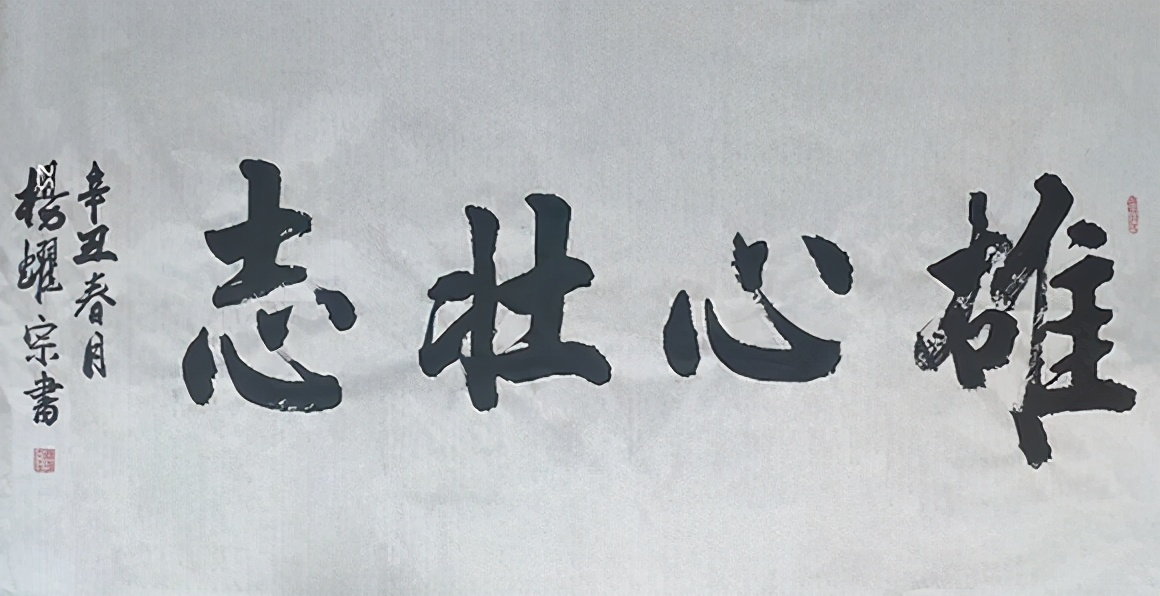 雄心壮志
辛丑春月
楊耀宗書